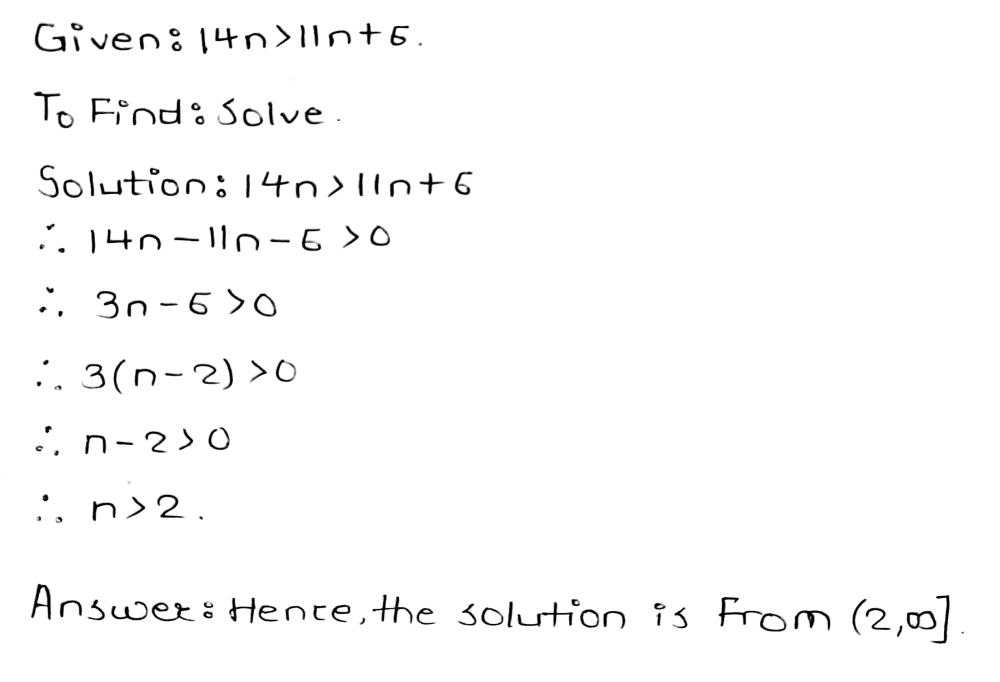 Given: 14n>11n+6.
To Find: Solve.
Solution: 14n>11n+6
∴ 14n-11n-6>0
∴ 3n-6>0
∴ 3(n-2)>0
∴ n-2>0
∴ n>2.
Answer: Hence, the solution is From (2,∞].